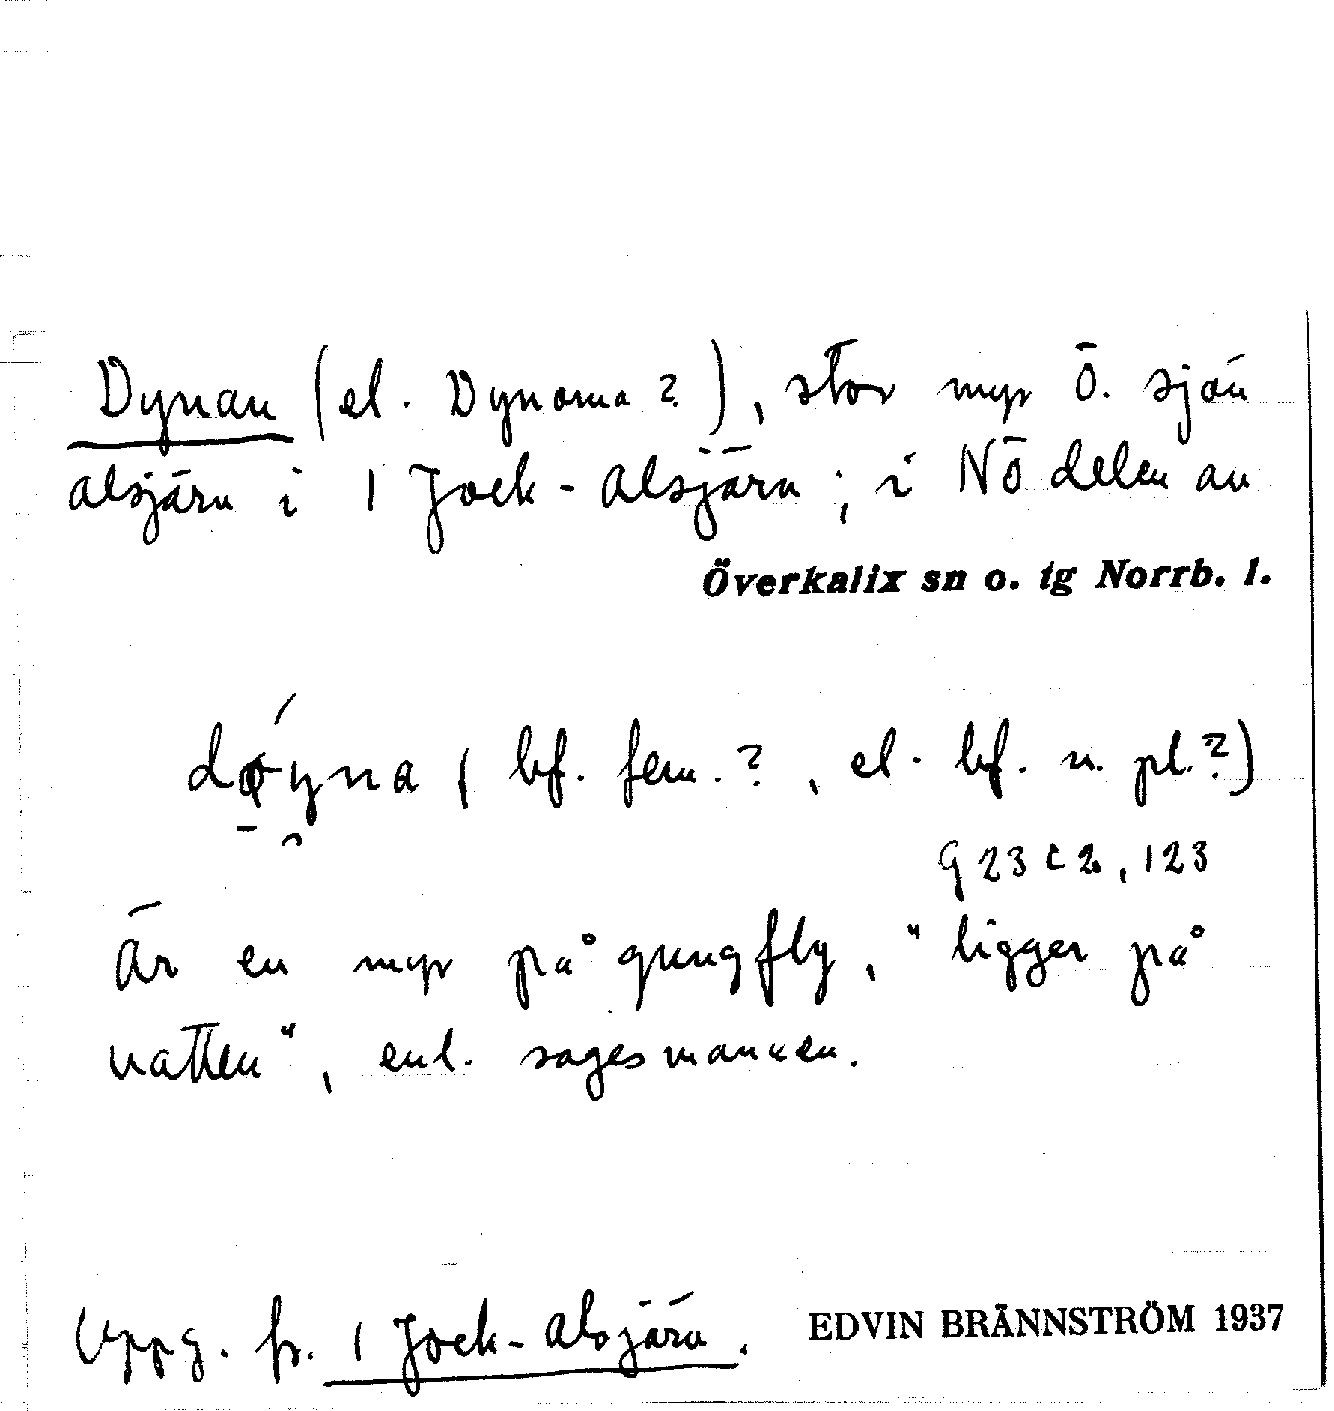 Dynan (el. Dynorna?), stor myr Ö. sjön
Alsjärn i 1 Jock-Alsjärn; i NÖ delen av
Överkalix sn o. tg Norrb. l.
(bf. fem.?, el. bf. n. pl.?)
G 23 c 2, 123
Är en myr på gungfly, "ligger på
vatten", enl. sagesmannen.
Uppg. fr. 1 Jock-Alsjärn.
EDVIN BRÄNNSTRÖM 1937